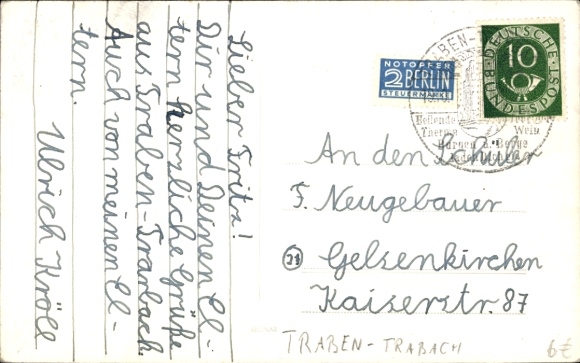 Lieber Fritz!
Dir und Deinen El-
tern herzliche Grüße
aus Traben-Trarbach.
Auch von meinen El-
tern.
Ulrich Kröll
NOTOPFER
2 BERLIN
STEUERMARKE
DEUTSCHE
10
BUNDESPOST
TRABEN-
Heilende
Therme Wein
Burgen u. Berge
An den Schüler
F. Neugebauer
Gelsenkirchen
Kaiserstr. 87
TRABEN-TRABACH
6€